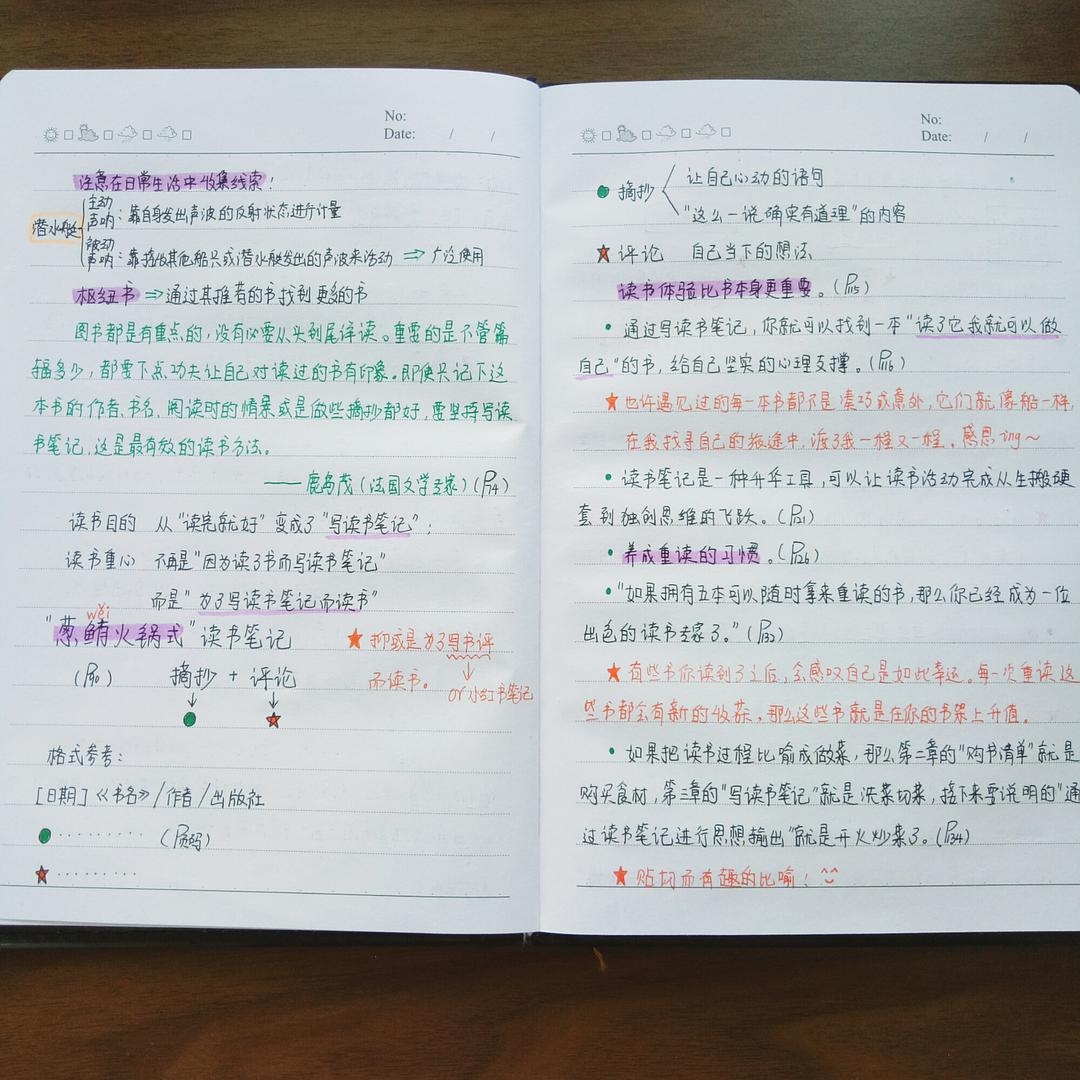 No:
Date: / /
注意在日常生活中收集线索！
潜水艇
主动
声呐：靠自身发出声波的反射状态进行计量
被动
声呐：靠接收其他船只或潜水艇发出的声波来活动 ⇒ 广泛使用
枢纽书 ⇒ 通过其推荐的书找到更多的书
图书都是有重点的，没有必要从头到尾详读。重要的是不管篇
幅多少，都要下点功夫让自己对读过的书有印象。即使只记下这
本书的作者、书名、阅读时的情景或是做些摘抄都好，要坚持写读
书笔记，这是最有效的读书方法。
——鹿岛茂（法国文学专家）（P14）
读书目的 从“读完就好”变成了“写读书笔记”；
读书重心 不再是“因为读了书而写读书笔记”
而是“为了写读书笔记而读书”
wěi
“葱鲔火锅式”读书笔记
★ 抑或是为了写书评
而读书。
or 小红书笔记
摘抄 + 评论
格式参考：
[日期]《书名》/作者/出版社
● ········· （P页码）
★ ·········
No:
Date: / /
● 摘抄
让自己心动的语句
“这么一说确实有道理”的内容
★ 评论 自己当下的想法
读书体验比书本身更重要。（P115）
• 通过写读书笔记，你就可以找到一本“读了它我就可以做
自己”的书，给自己坚实的心理支撑。（P116）
★ 也许遇见过的每一本书都不是凑巧或意外，它们就像船一样，
在我找寻自己的旅途中，渡了我一程又一程。感恩ing～
• 读书笔记是一种升华工具，可以让读书活动完成从生搬硬
套到独创思维的飞跃。
• 养成重读的习惯。
• “如果拥有五本可以随时拿来重读的书，那么你已经成为一位
出色的读书专家了。”
★ 有些书你读到了之后，会感叹自己是如此幸运。每一次重读这
些书都会有新的收获，那么这些书就是在你的书架上升值。
• 如果把读书过程比喻成做菜，那么第二章的“购书清单”就是
购买食材，第三章的“写读书笔记”就是洗菜切菜，接下来要说明的“通
过读书笔记进行思想输出”就是开火炒菜了。
★ 贴切而有趣的比喻！